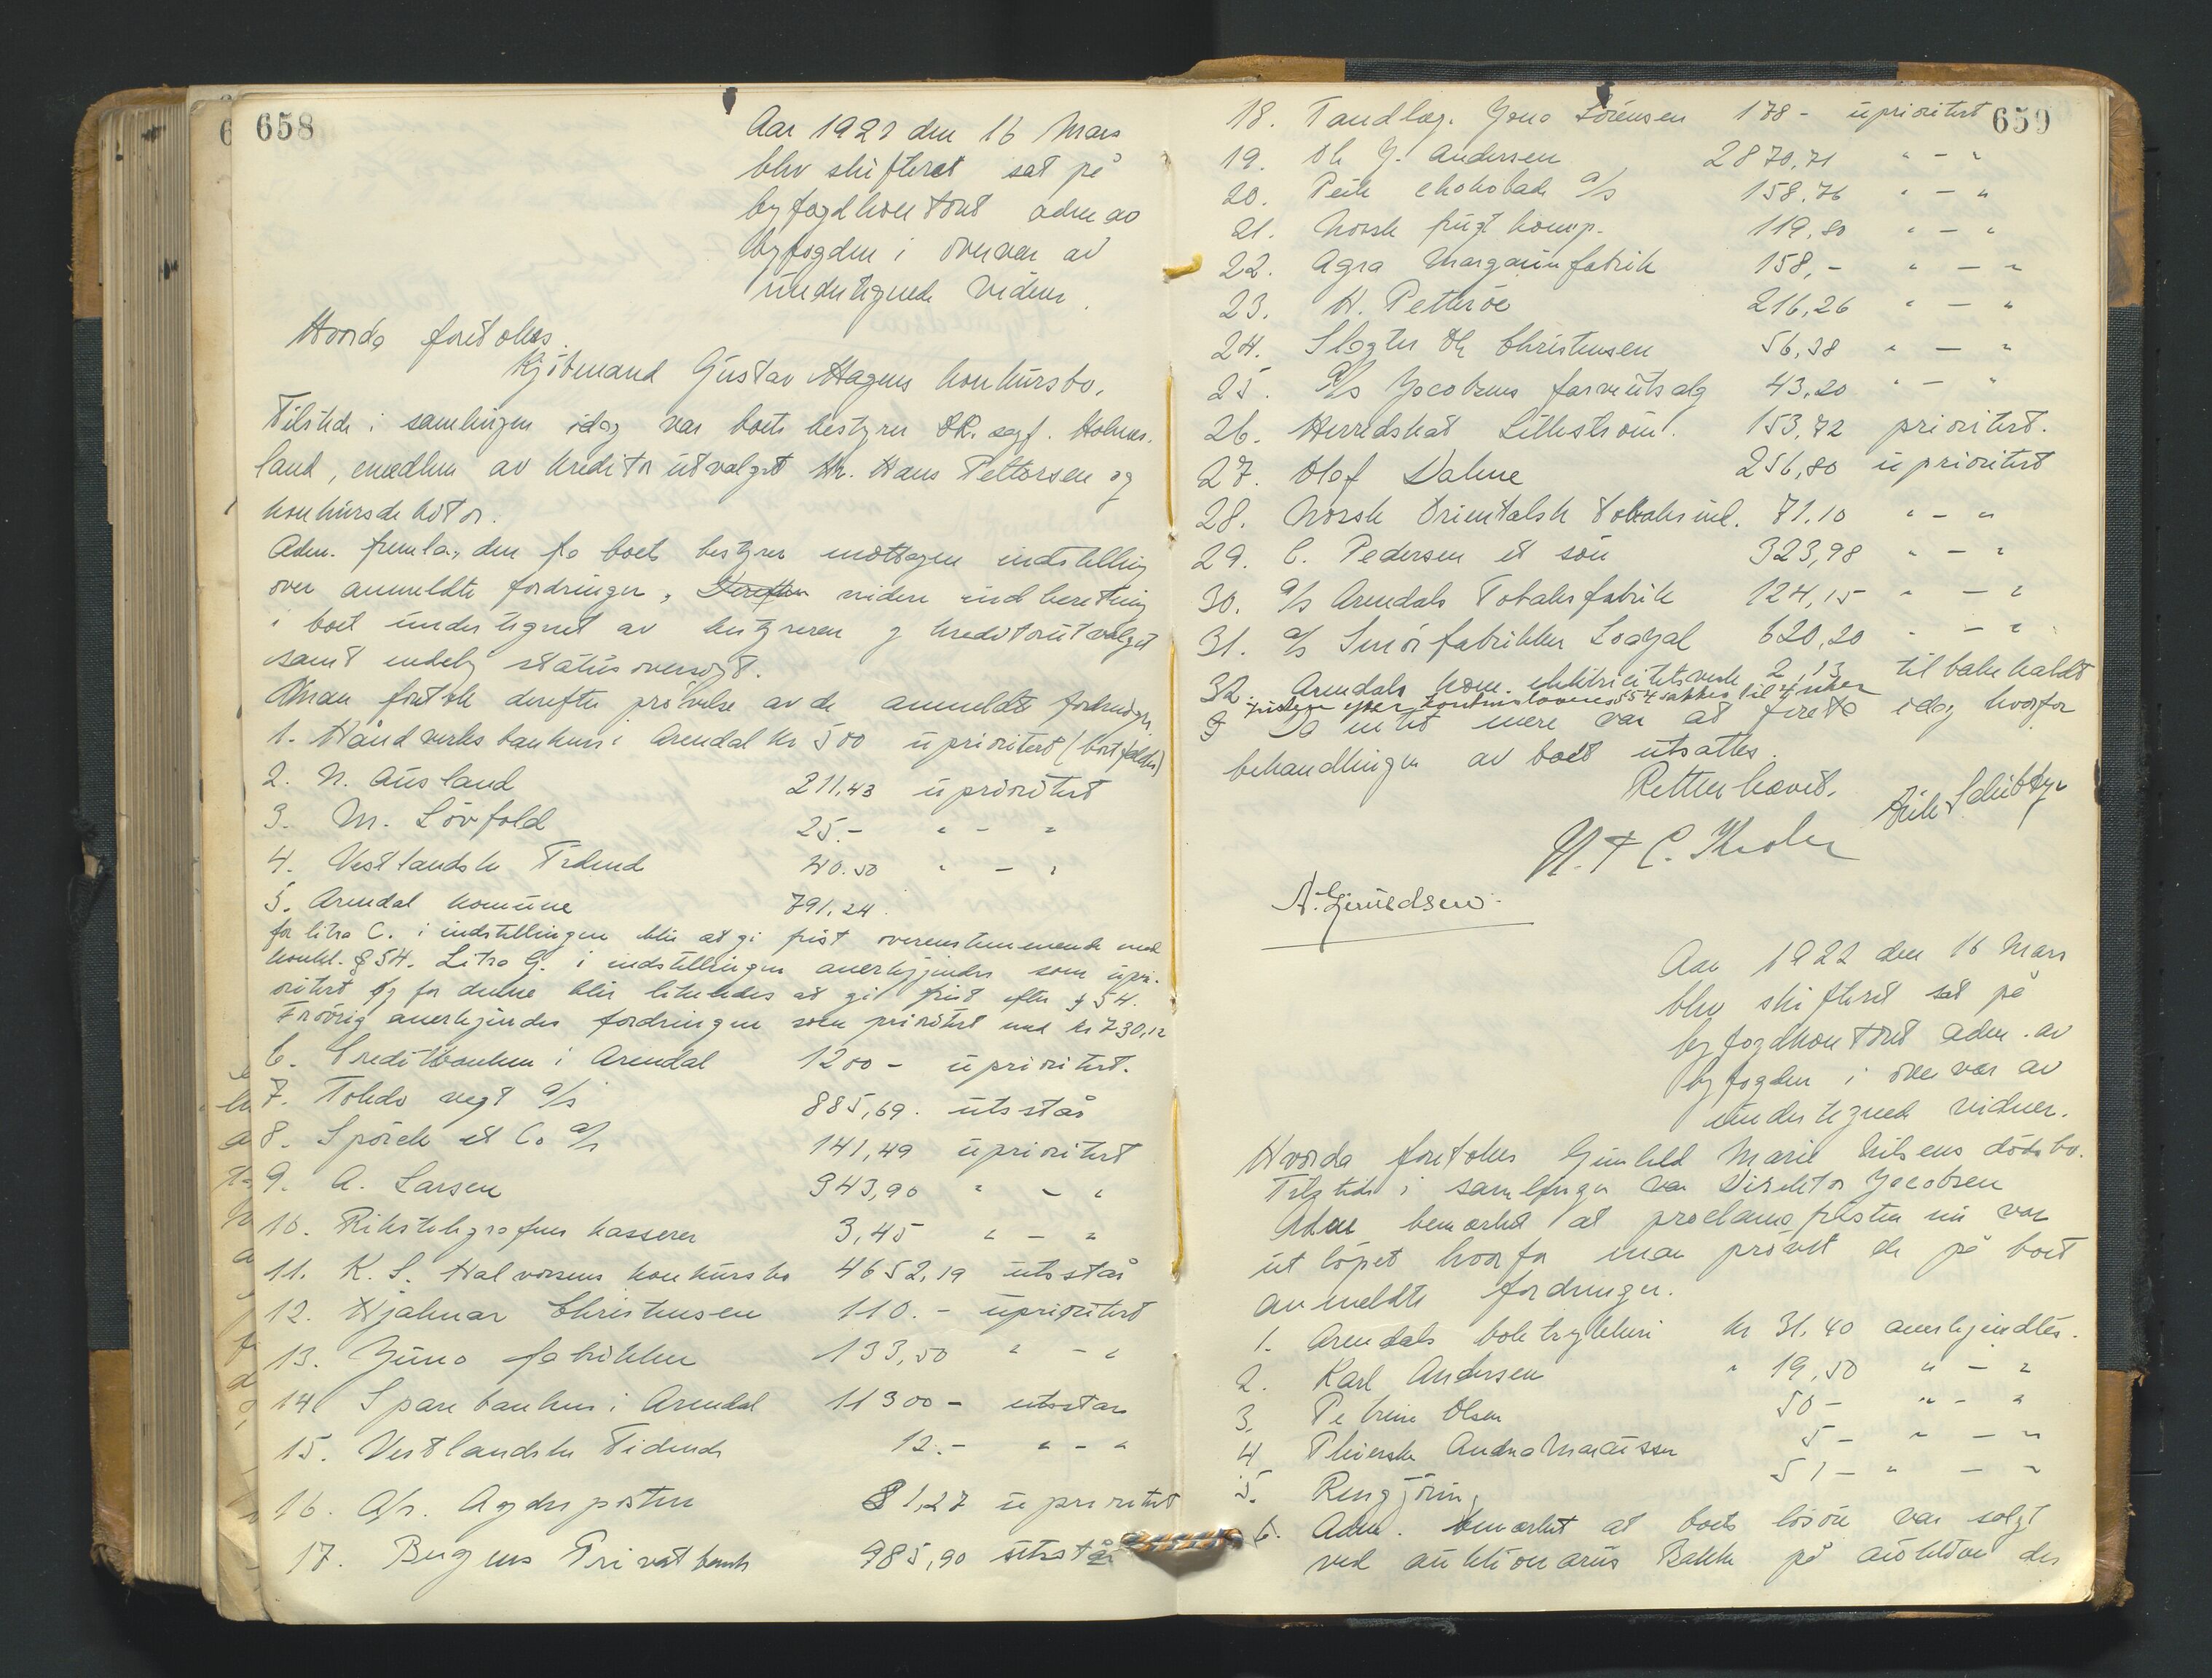 658
Aar 1922 den 16 Mars
blev skifteret sat på
byfogdkontoret adm av
byfogden i overvær av
undertegnede vidner.
Hvorda foretokes
Kjöbmand Gustav Hagens konkursbo.
Tilstede i samlingen idag var boets bestyrer OR. sagf. Holmes-
land, medlem av kreditorutvalget Hr. Hans Pettersen og
konkursdebitor.
Adm. fremla, den fra boets bestyrer mottagen indstilling
over anmeldte fordringer, Derefter videre indberetning
i boet undertegnet av bestyreren og kreditorutvalget
samt endelig statusoversigt.
Man foretok derefter prövelse av de anmeldte fordringer.
1. Håndverksbanken i Arendal kr 500 uprioritert (bortfalder)
2. N. Ausland 211,43 uprioritert
3. M. Lövfold 25.- " - "
4. Vestlandske Tidend 40.50 " - "
5. Arendal komune 791,24
for litra C. i indstillingen blir at gi frist overenstemmende med
konkl. § 54. Litra G. i indstillingen anerkjendes som upri-
oritert og for denne blir likeledes at gi frist efter § 54.
Forövrig anerkjendes fordringen som prioritert med kr 730,12
6. Creditbanken i Arendal 1200- uprioritert.
7. Toledo vegt a/s 885,69. utsstår
8. Spörck et Co a/s 141,49 uprioritert
9. A. Larsen 343,90 " - "
10. Rikstelegrafens kasserer 3,45 " - "
11. K. S. Halvorsens konkursbo 4652,19 utsstår
12. Hjalmar Christensen 110.- uprioritert
13. Juno fabrikken 133,50 " - "
14 Sparebanken i Arendal 11300- utsstår
15. Vestlandske Tidende 12.- " - "
16. A/s. Agderposten 81,27 uprioritert
17. Bergens Privatbank 985,90 utsstår
659
18. Tandlæg. Jens Sörensen 178- uprioritert
19. Th J. Andersen 2870,71 " - "
20. Peik chokolade a/s 158,76 " - "
21. Norsk frugt komp. 119,80 " - "
22. Agra Margarinfabrik 158,- " - "
23. H. Petteröe 216,26 " - "
24. Slagter Th Christensen 56,38 " - "
25. A/s Jacobsens farveutsalg 43,20 " - "
26. Herredskas Lilleström. 153,72 prioritert.
27. Olaf Dahne 256,80 uprioritert
28. Norsk Orientalsk Tobaksind. 71.10 " - "
29. C. Pedersen et sön 323,98 " - "
30. a/s Arendals Tobaksfabrik 124,15 " - "
31. a/s Smörfabrikken Loayal 620,20 " - "
32. Arendals kom. elektricitetsverk 2,13 tilbakekaldt
Fristen efter konkurslovens § 54 sættes til 4 uker
Da intet mere var at foreta idag hvorfor
behandlingen av boet utsattes.
Retten hævet.
A. Gjeruldsen.
Aar 1922 den 16 Mars
blev skifteret sat på
byfogdkontoret adm. av
byfogden i overvær av
undertegnede vidner.
Hvorda foretokes Gunhild Marie Nilsens dödsbo.
Tilstede i samlingen var Direktör Jacobsen
Adm bemærket at proclamafristen nu var
utlöpet hvorfor man prövet de på boet
anmeldte fordringer.
1. Arendals boktrykkeri kr 31.40 anerkjendtes.
2. Karl Andersen " 19,50 " - "
3. Petrine Olsen 50- " - "
4 Pleierske Andrea Mariussen 5- " - "
5. Rengjöring 51- " - "
6. Adm. bemærket at boets lösöre var solgt
ved auktionarius Bakke på auktion den